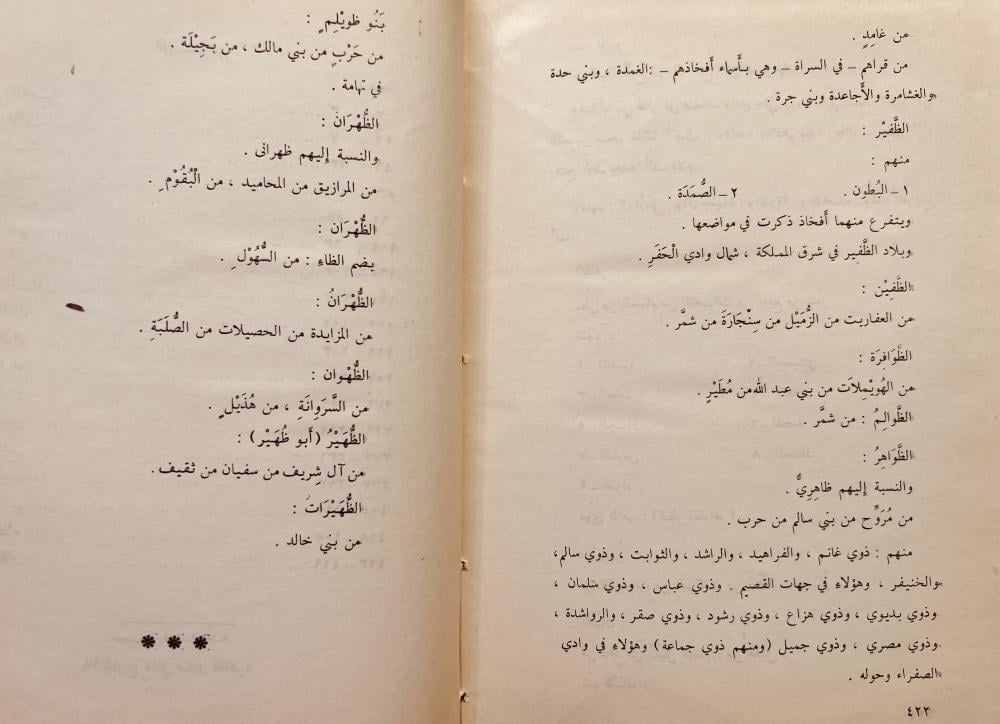 من غامِدٍ .
من قراهم ــ في السراة ــ وهي بأسماء أفخاذهم ــ : الغمدة ، وبني حدة
والغشامرة والأجاعدة وبني جرة .
الظَّفيْر :
منهم :
١ ــ البُطون . ٢ ــ الصُّمَدَة .
ويتفرع منهما أفخاذ ذكرت في مواضعها .
وبلاد الظَّفِير في شرق المملكة ، شمال وادي الْحَفَرِ .
الظَّفِيْن :
من العفاريت من الزُّمَيْل من سِنْجَارَةَ من شمَّر .
الظَّوافِرَة :
من الهُويْمِلاَت من بني عبد الله من مُطَيْرٍ .
الظَّوالِمُ : من شمَّر .
الظَّوَاهِرُ :
والنسبة إليهم ظاهِرِيٌّ .
من مُرَوِّح من بني سالم من حرب .
منهم : ذوي غانم ، والفراهيد ، والراشد ، والثوابت ، وذوي سالم،
والخنيفر ، وهؤلاءِ في جهات القصيم . وذوي عباس ، وذوي سلمان ،
وذوي بديوي ، وذوي هزاع ، وذوي رشود ، وذوي صقر ، والرواشدة ،
وذوي مصري ، وذوي جميل (ومنهم ذوي جماعة) وهؤلاءِ في وادي
الصفراء وحوله .
٤٢٢
بَنُو ظويْلِمٍ :
من حَرْبٍ من بني مالك ، من بَجِيْلَة .
في تهامة .
الظُّهْرَانُ :
والنسبة إليهم ظهرانى .
من المرازيق من المحاميد ، من الْبُقُوْمِ .
الظُّهْرَان :
بضم الظاءِ : من السُّهُوْلِ .
الظُّهْرَانُ :
من المزايدة من الحصيلات من الصُّلَبَةِ .
الظُّهْوان :
من السَّرَوانَةِ ، من هُذَيْلٍ .
الظُّهَيْرُ (أبو ظُهَيْر) :
من آل شريف من سفيان من ثقيف .
الظُّهَيْرَاتُ :
من بني خالد .
* * *